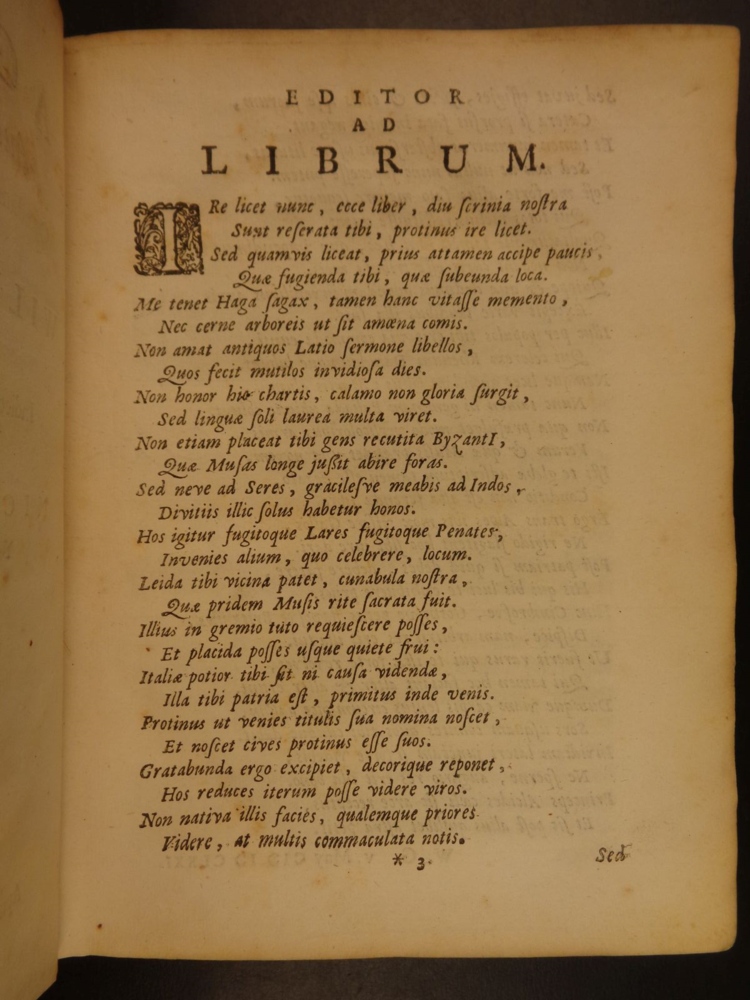 EDITOR
AD
LIBRUM.
IRe licet nunc, ecce liber, diu ſcrinia noſtra
Sunt reſerata tibi, protinus ire licet.
Sed quamvis liceat, prius attamen accipe paucis,
Quæ fugienda tibi, quæ ſubeunda loca.
Me tenet Haga ſagax, tamen hanc vitaſſe memento,
Nec cerne arboreis ut ſit amœna comis.
Non amat antiquos Latio ſermone libellos,
Quos fecit mutilos invidioſa dies.
Non honor hic chartis, calamo non gloria ſurgit,
Sed linguæ ſoli laurea multa viret.
Non etiam placeat tibi gens recutita ByzantI,
Quæ Muſas longe juſſit abire foras.
Sed neve ad Seres, gracileſve meabis ad Indos,
Divitiis illic ſolus habetur honos.
Hos igitur fugitoque Lares fugitoque Penates,
Invenies alium, quo celebrere, locum.
Leida tibi vicina patet, cunabula noſtra,
Quæ pridem Muſis rite ſacrata fuit.
Illius in gremio tuto requieſcere poſſes,
Et placida poſſes uſque quiete frui:
Italiæ potior tibi ſit ni cauſa videndæ,
Illa tibi patria eſt, primitus inde venis.
Protinus ut venies titulis ſua nomina noſcet,
Et noſcet cives protinus eſſe ſuos.
Gratabunda ergo excipiet, decorique reponet,
Hos reduces iterum poſſe videre viros.
Non nativa illis facies, qualemque priores
Videre, at multis commaculata notis.
* 3
Sed